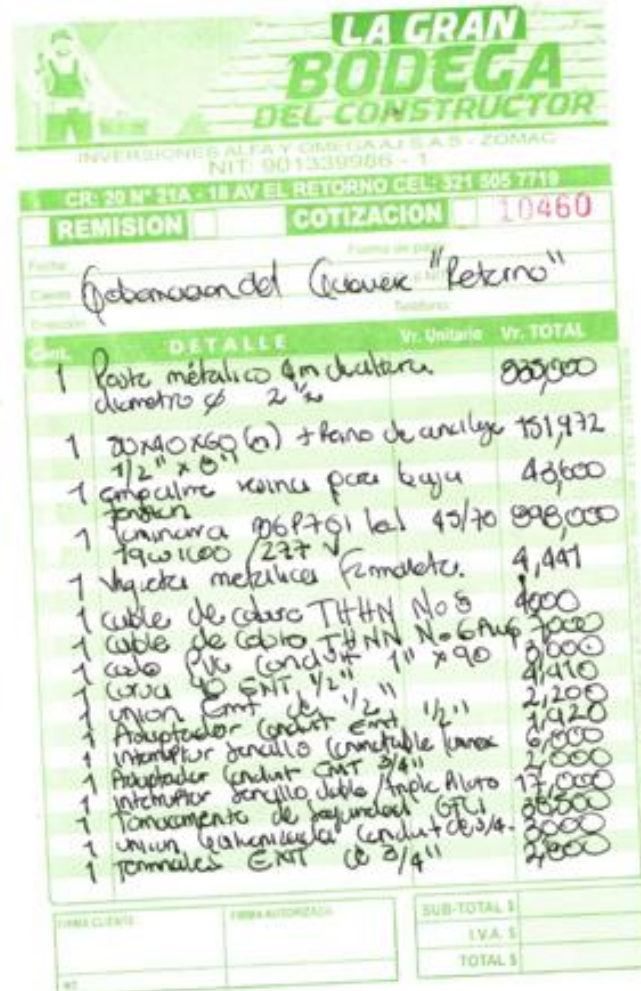 LA GRAN
BODEGA
DEL CONSTRUCTOR
INVERSIONES ALFA Y OMEGA A.J S.A.S - ZOMAC
NIT: 901339986 - 1
CR: 20 N° 21A - 18 AV EL RETORNO CEL: 321 505 7719
REMISION COTIZACION 10460
Fecha: Forma de pago:
Cliente Gobernacion del "Retorno"
Dirección Teléfono:
Cant. DETALLE Vr. Unitario Vr. TOTAL
1 Poste métalico 4m de altura
diametro ø 2 1/2
1 (a) + de anclaje 151,972
1/2" x
1 empalme resina para baja
tension
1 luminaria 45/70 898,000
/277 V
1 metalica 4,441
1 cable de cobre THHN No 8 4000
1 cable de cobre THNN No 6 7000
1 codo PVC conduit 1" x 90
1 curva 90 EMT 1/2" 4,410
1 union Emt de 1/2" 2,200
1 Adaptador conduit Emt 1/2" 1,920
1 interruptor sencillo conmutable 6,000
1 Adaptador conduit EMT 3/4" 2,000
1 interruptor sencillo doble/triple 17,000
1 Tomacorriente de seguridad GFCI
1 union galvanizada conduit de 3/4 3000
1 Terminales EMT de 3/4"
FIRMA CLIENTE FIRMA AUTORIZADA SUB-TOTAL $
I.V.A. $
TOTAL $